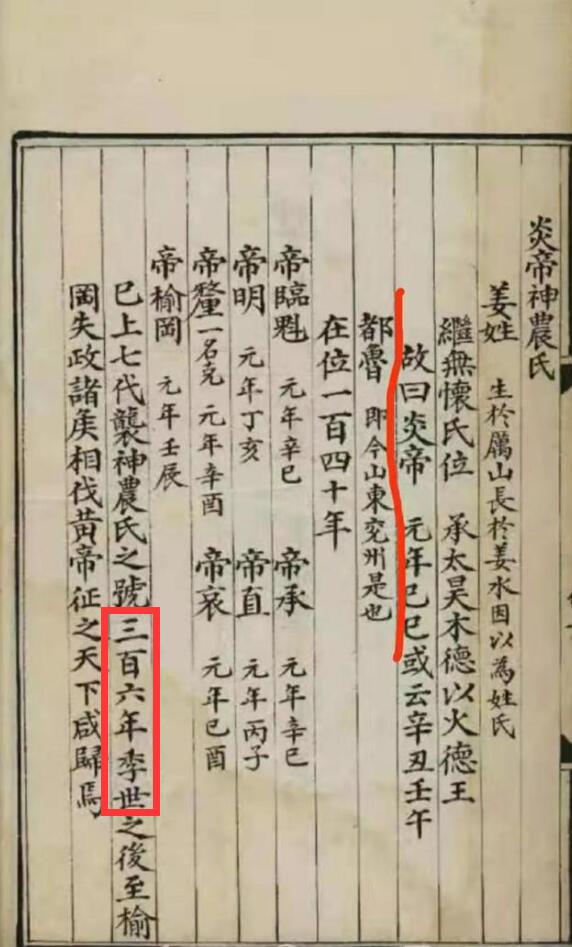 炎帝神農氏
姜姓 生於厲山長於姜水因以為姓氏
繼無懷氏位 承太昊木德以火德王
故曰炎帝 元年己巳或云辛丑壬午
都魯 即今山東兖州是也
在位一百四十年
帝臨魁 元年辛巳 帝承 元年辛巳
帝明 元年丁亥 帝直 元年丙子
帝釐一名克 元年辛酉 帝哀 元年己酉
帝榆岡 元年壬辰
已上七代襲神農氏之號三百六年季世之後至榆
岡失政諸矦相伐黃帝征之天下咸歸焉